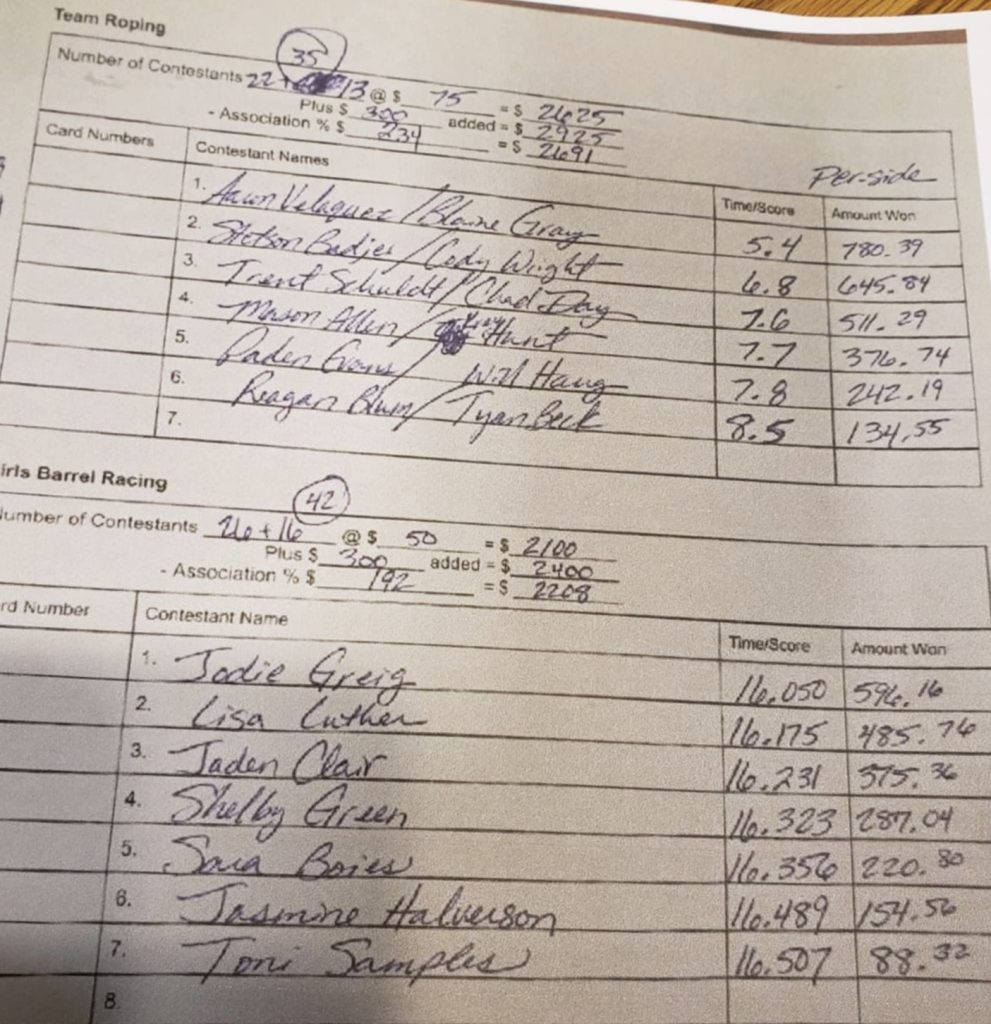 Team Roping
35
Number of Contestants 22 + 13 @ $ 75 = $ 2625
Plus $ 300 added = $ 2925
- Association % $ 234 = $ 2691
Per-side
Card Numbers Contestant Names Time/Score Amount Won
1. Aaron Velaquez / Blaine Gray 5.4 780.39
2. Stetson Badjer / Cody Wright 6.8 645.84
3. Trent Schuldt / Chad Day 7.6 511.29
4. Mason Allen / Hunt 7.7 376.74
5. Paden Evans / Will Haug 7.8 242.19
6. Reagan Blum / Tyan Beck 8.5 134.55
7.
irls Barrel Racing
42
Number of Contestants 26 + 16 @ $ 50 = $ 2100
Plus $ 300 added = $ 2400
- Association % $ 192 = $ 2208
rd Number Contestant Name Time/Score Amount Won
1. Jodie Greig 16.050 596.16
2. Lisa Luther 16.175 485.76
3. Jaden Clair 16.231 375.36
4. Shelby Green 16.323 287.04
5. Sara Boies 16.356 220.80
6. Jasmine Halverson 16.489 154.56
7. Toni Samples 16.507 88.32
8.